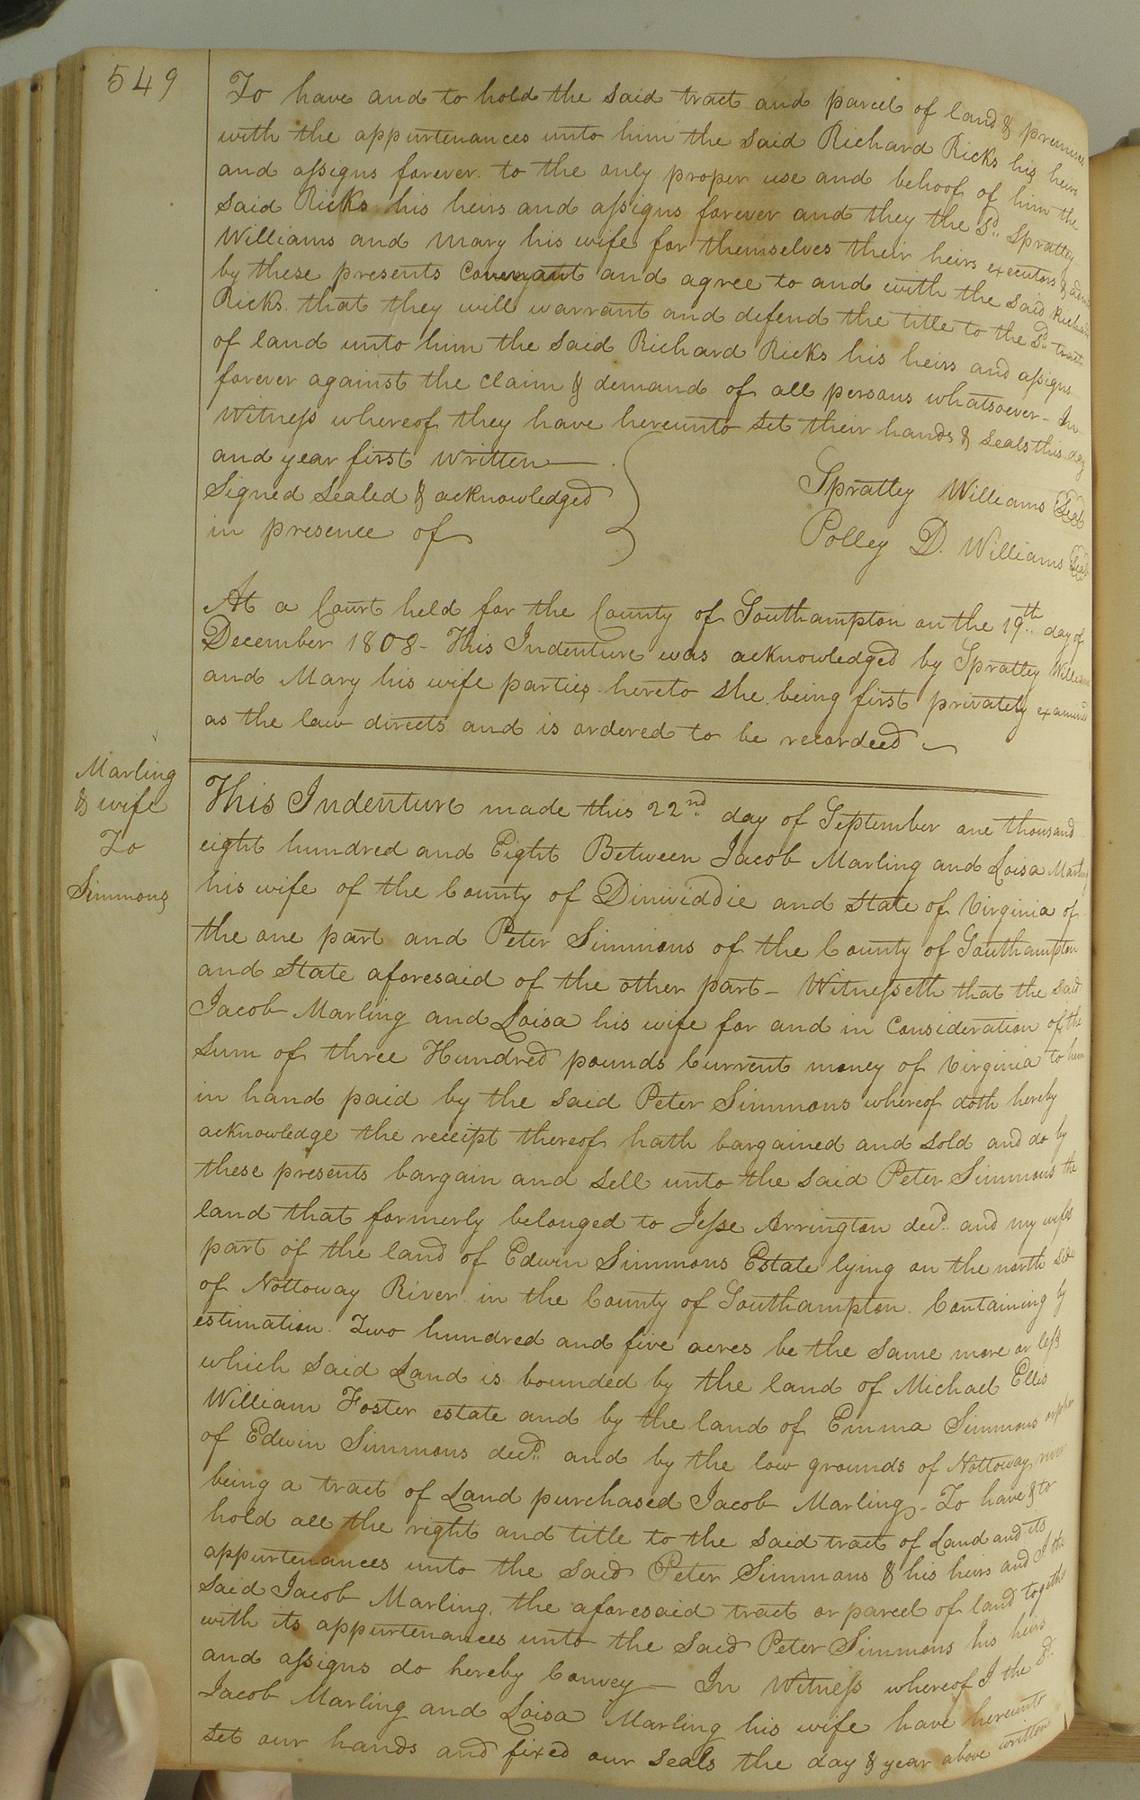 549
To have and to hold the said tract and parcel of land & premises
with the appurtenances unto him the said Richard Ricks his heirs
and assigns forever. to the only proper use and behoof of him the
said Ricks his heirs and assigns forever and they the Sd. Spratley
Williams and Mary his wife for themselves their heirs executors &
by these presents Covenant and agree to and with the said Richard
Ricks that they will warrant and defend the title to the Sd. tract
of land unto him the said Richard Ricks his heirs and assigns
forever against the claim & demand of all persons whatsoever - In
Witness whereof they have hereunto set their hands & seals this day
and year first written
Signed Sealed & acknowledged
in presence of
Spratley Williams Seal
Polley D. Williams Seal
At a Court held for the County of Southampton on the 19th day of
December 1808 - This Indenture was acknowledged by Spratley Williams
and Mary his wife parties hereto she being first privately examined
as the law directs and is ordered to be recordeed
Marling
& wife
To
Simmons
This Indenture made this 22nd day of September one thousand
eight hundred and Eight Between Jacob Marling and Loisa Marling
his wife of the County of Dinwiddie and State of Virginia of
the one part and Peter Simmons of the County of Southampton
and State aforesaid of the other part - Witnesseth that the said
Jacob Marling and Loisa his wife for and in Consideration of the
Sum of three Hundred pounds Current money of Virginia to him
in hand paid by the said Peter Simmons whereof doth hereby
acknowledge the receipt thereof hath bargained and sold and do by
these presents bargain and sell unto the said Peter Simmons the
land that formerly belonged to Jesse Arrington decd. and my wifes
part of the land of Edwin Simmons Estate lying on the north side
of Nottoway River in the County of Southampton. Containing by
estimation Two hundred and five acres be the same more or less
which said Land is bounded by the land of Michael Ellis
William Foster estate and by the land of Emma Simmons orphan
of Edwin Simmons decd. and by the low grounds of Nottoway river
being a tract of Land purchased Jacob Marling - To have & to
hold all the right and title to the said tract of Land and its
appurtenances unto the said Peter Simmons & his heirs and I the
said Jacob Marling. the aforesaid tract or parcel of land together
with its appurtenances unto the said Peter Simmons his heirs
and assigns do hereby Convey - In Witness whereof I the Sd.
Jacob Marling and Loisa Marling his wife have hereunto
set our hands and fixed our seals the day & year above written